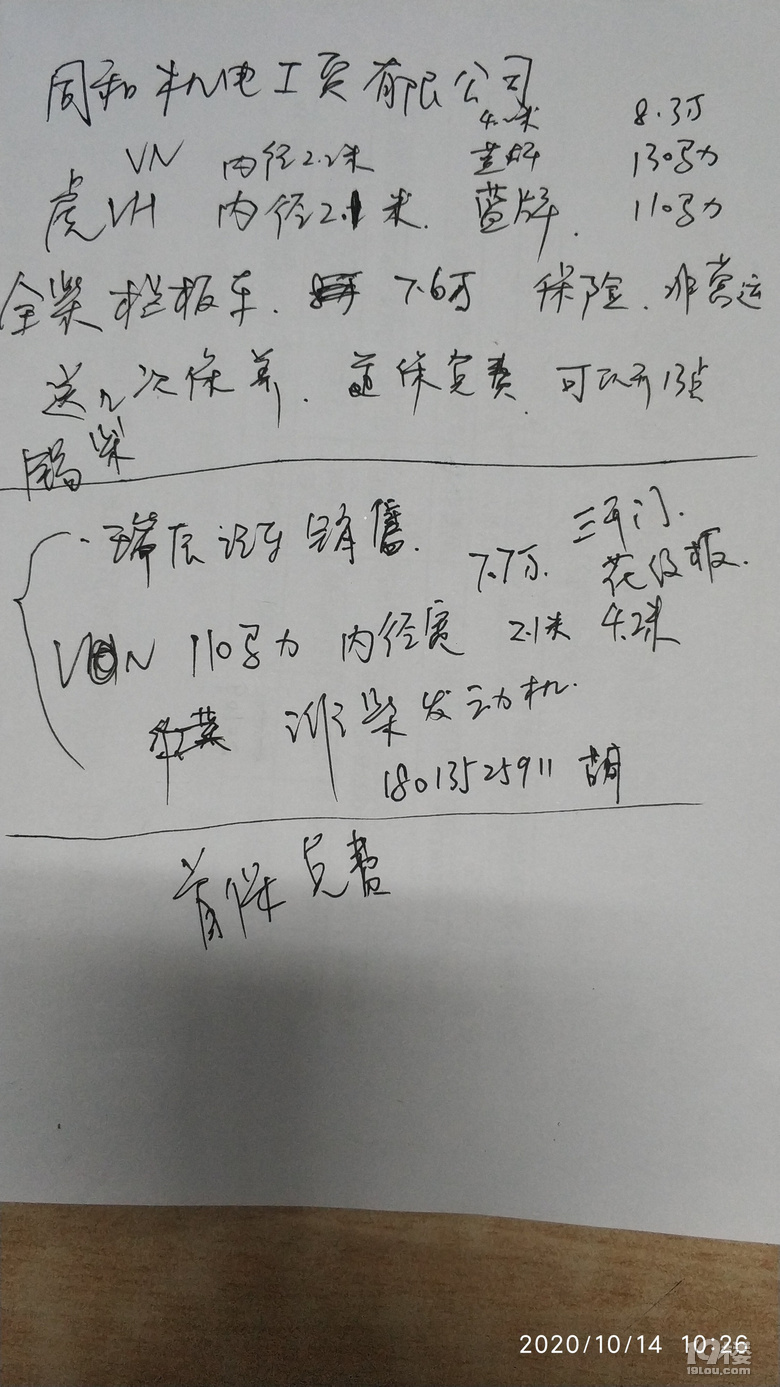 同和机电工贸有限公司
4.2米 8.3万
VN 内径2.2米 蓝牌 130马力
虎VH 内径2.1米. 蓝牌. 110马力
全柴 栏板车. 7.6万 保险. 非营运
送几次保养. 首保免费. 可以开13点
锡柴
瑞 汽车销售. 三开门.
7.7万. 花纹板.
VN 110马力 内径宽 2.1米 4.2米
潍柴发动机.
18013525911 胡
首保免费
2020/10/14 10:26
19楼
19lou.com